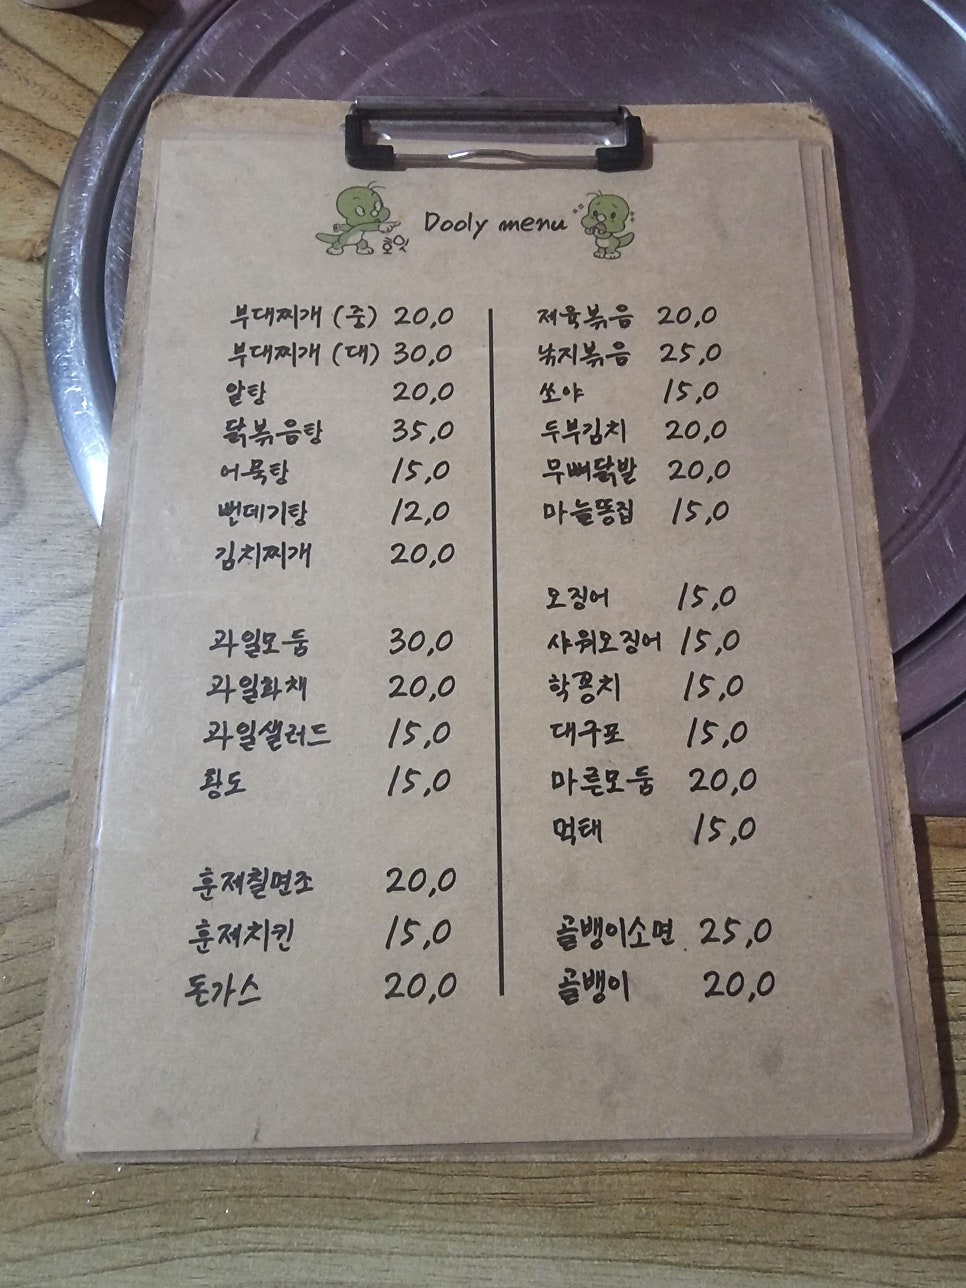 Dooly menu
호잇
부대찌개 (중) 20,0
부대찌개 (대) 30,0
알탕 20,0
닭볶음탕 35,0
어묵탕 15,0
뻔데기탕 12,0
김치찌개 20,0
과일모둠 30,0
과일화채 20,0
과일샐러드 15,0
황도 15,0
훈제칠면조 20,0
훈제치킨 15,0
돈가스 20,0
제육볶음 20,0
낚지볶음 25,0
쏘야 15,0
두부김치 20,0
무뼈닭발 20,0
마늘똥집 15,0
오징어 15,0
샤워오징어 15,0
학꽁치 15,0
대구포 15,0
마른모둠 20,0
먹태 15,0
골뱅이소면 25,0
골뱅이 20,0